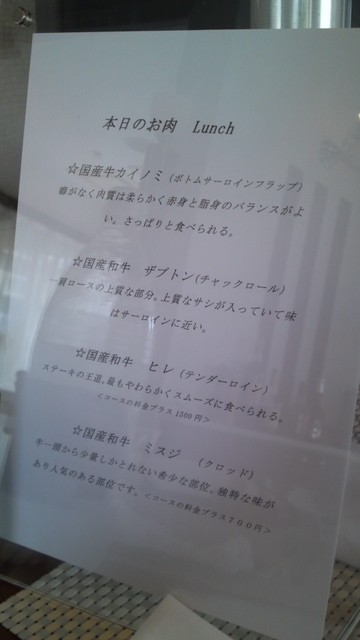 本日のお肉 Lunch
☆国産牛カイノミ（ボトムサーロインフラップ）
癖がなく肉質は柔らかく赤身と脂身のバランスがよ
い。さっぱりと食べられる。
☆国産和牛 ザブトン（チャックロール）
一質ロースの上質な部分。上質なサシが入っていて味
はサーロインに近い。
☆国産和牛 ヒレ（テンダーロイン）
ステーキの王道。最もやわらかくスムーズに食べられる。
＜コースの料金プラス1500円＞
☆国産和牛 ミスジ （クロッド）
牛一頭から少量しかとれない希少な部位。独特な味が
あり人気のある部位です。＜コースの料金プラス７００円＞